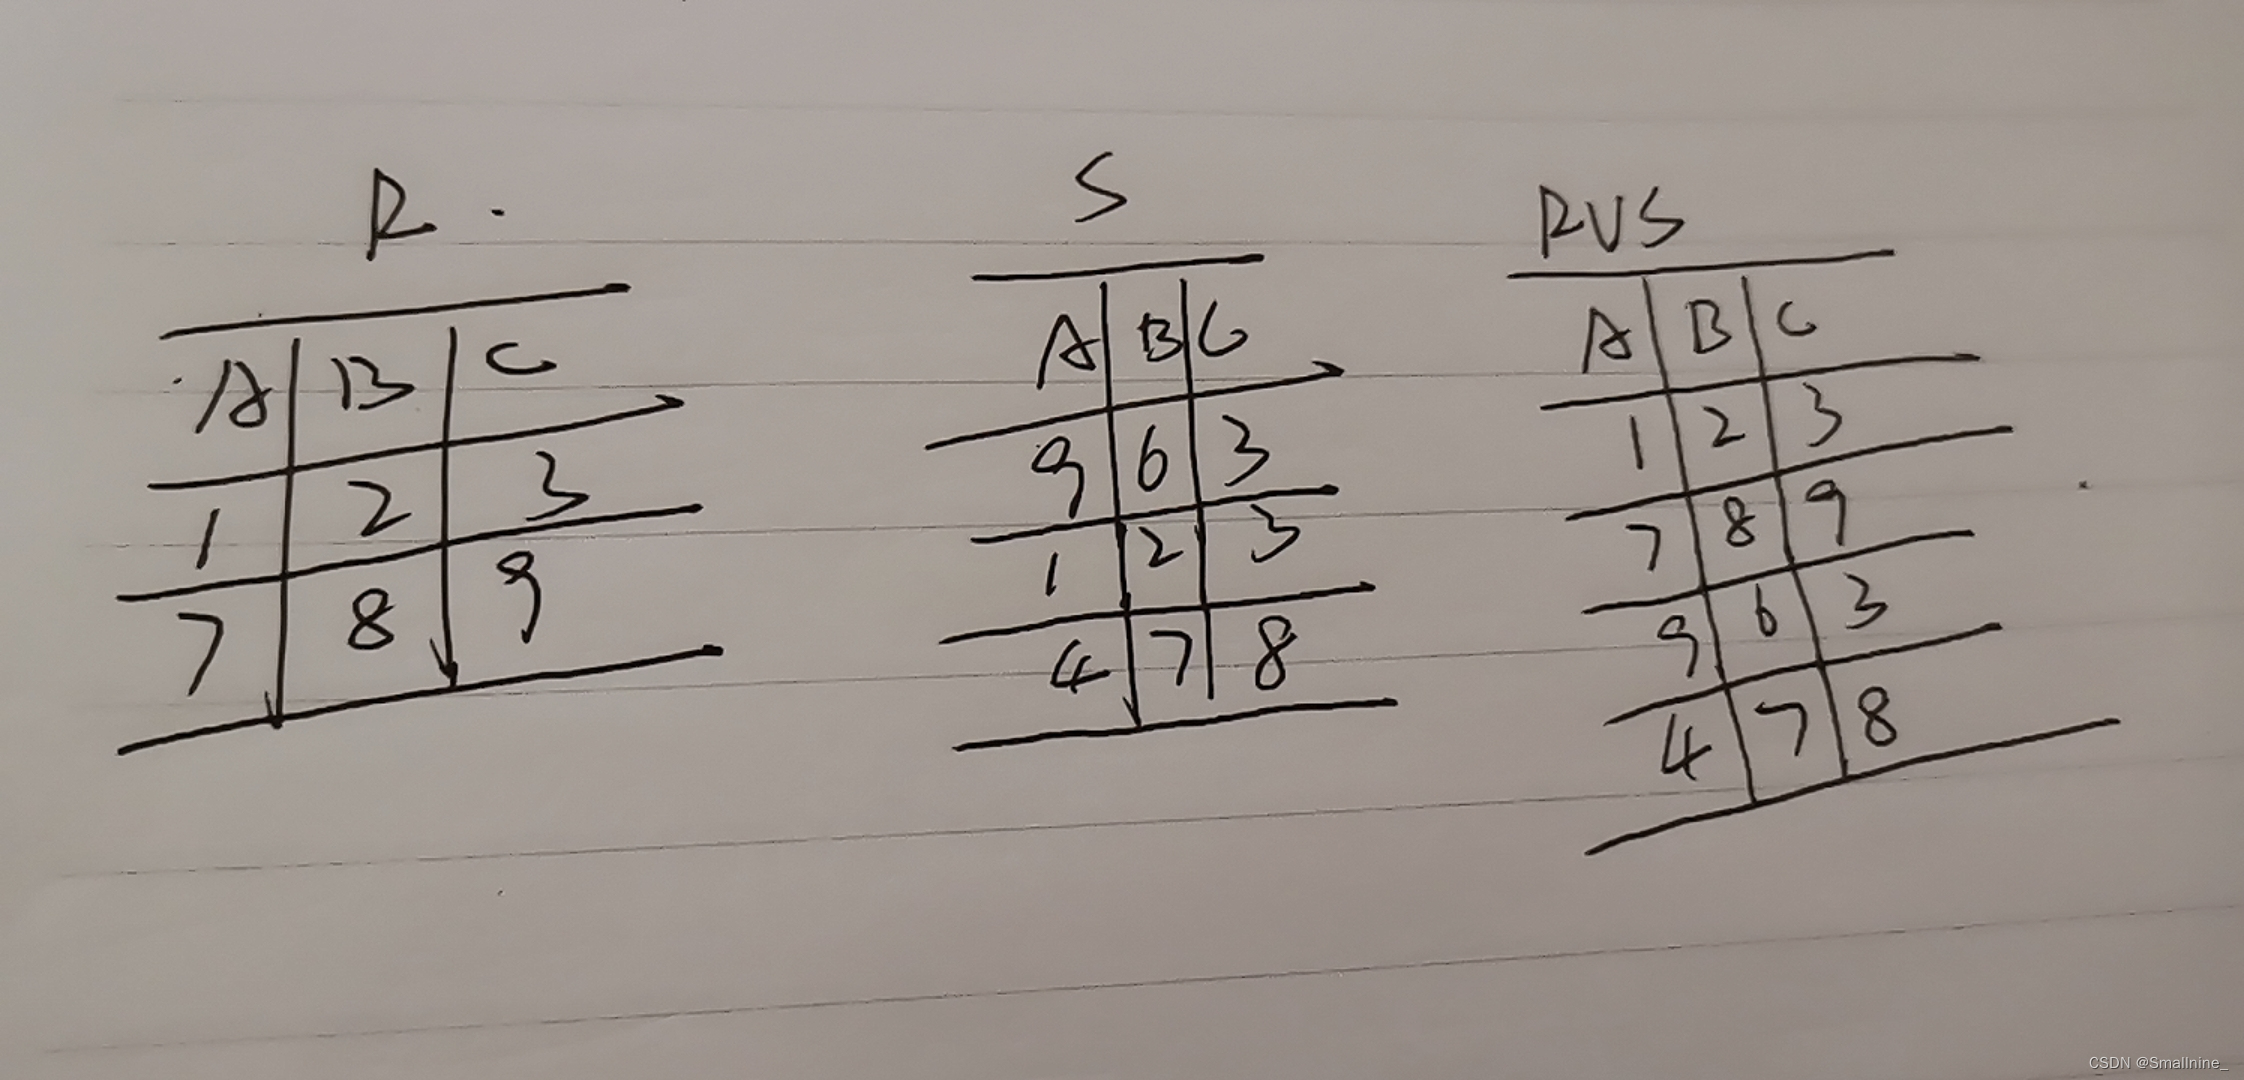 R
A B C
1 2 3
7 8 9
S
A B C
9 6 3
1 2 3
4 7 8
RUS
A B C
1 2 3
7 8 9
9 6 3
4 7 8
CSDN @Smallnine_